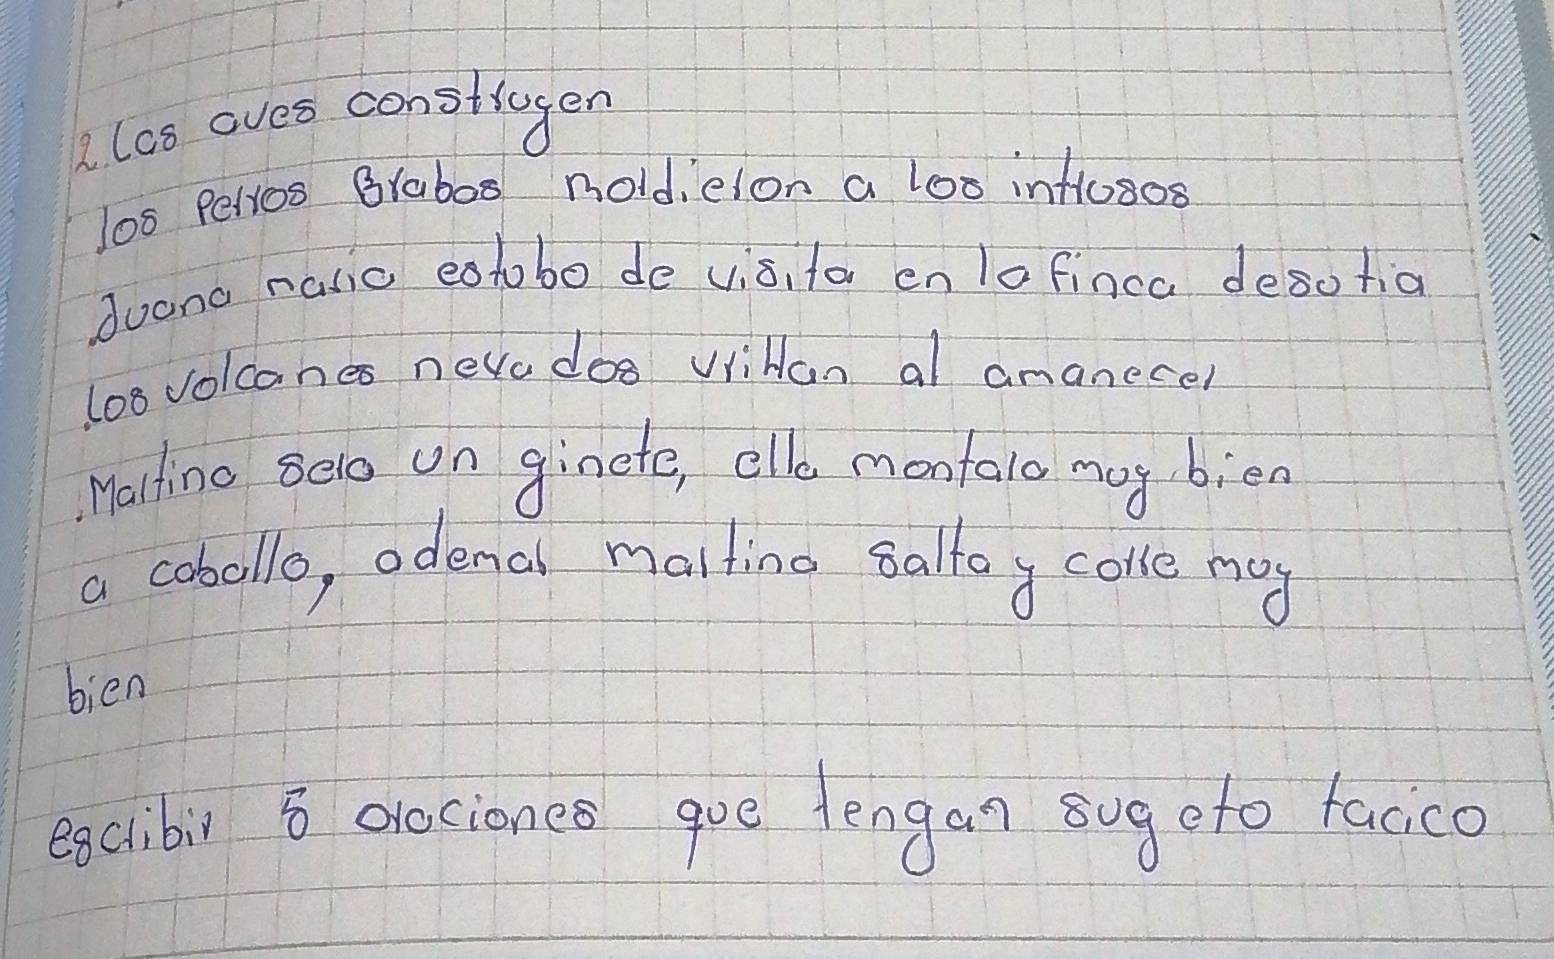 2. Las aves construgen
los Perros Brabos mordieron a los intrusos
Juana maria estobo de visita en la finca desu tia
los volcanes nevados vrillan al amanecer
Martina sera un ginete, ella montara muy bien
a caballo, ademas martina salta y corre muy
bien
escribir 5 oraciones que tengan sugeto tacico